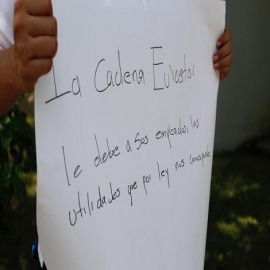 La Cadena Eurostar
le debe a sus empleados, las
utilidades que por ley nos corresponde